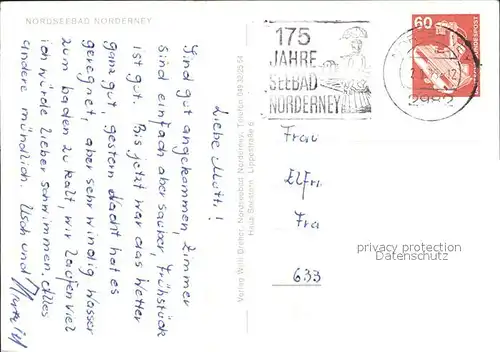 NORDSEEBAD NORDERNEY
Liebe Mutti!
Sind gut angekommen, Zimmer
sind einfach aber sauber, Frühstück
ist gut. Bis jetzt war das Wetter
ganz gut, gestern Nacht hat es
geregnet, aber sehr windig Wasser
zum baden zu kalt, wir laufen viel
ich würde lieber schwimmen. Alles
andere mündlich. Usch und
Haus Bernstein, Lippestraße 6
Verlag Willi Dreher, Nordseebad Norderney, Telefon
175
JAHRE
SEEBAD
NORDERNEY
60
BUNDESPOST
2982
Frau
Elfri
Fra
633
privacy protection
Datenschutz